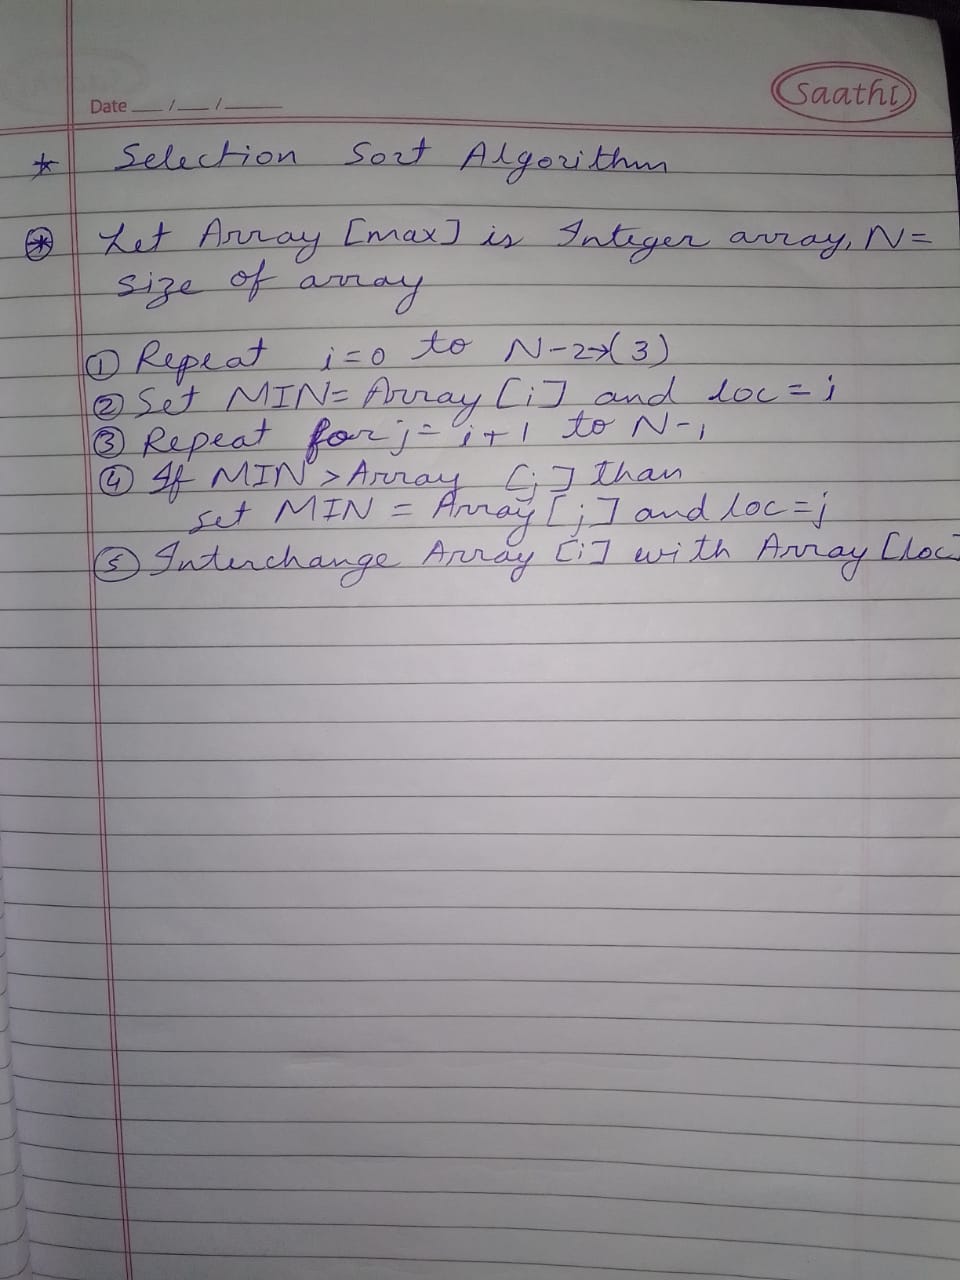 Saathi
Date __/__/____
* Selection Sort Algorithm
* Let Array [max] is Integer array, N=
size of array
① Repeat i=0 to N-2→(3)
② Set MIN= Array [i] and loc=i
③ Repeat for j= i+1 to N-1
④ If MIN > Array [j] than
set MIN = Array [j] and loc=j
⑤ Interchange Array [i] with Array [loc]